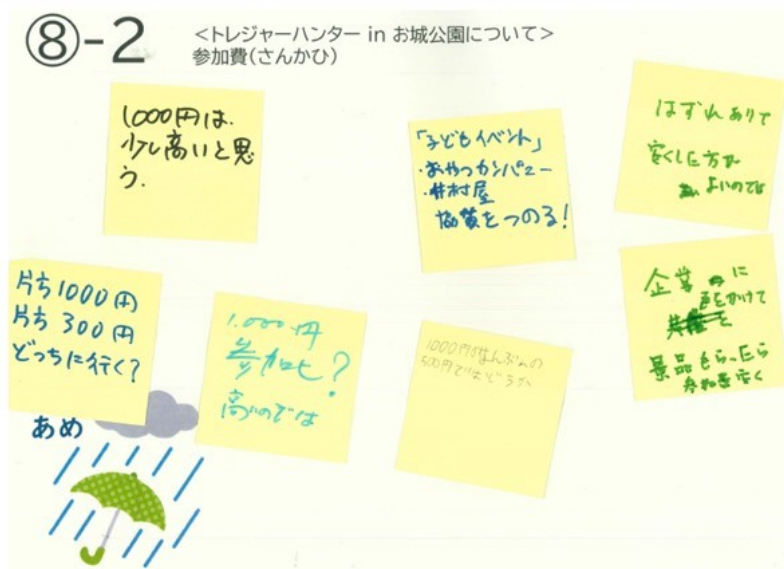 ⑧-2
<トレジャーハンター in お城公園について>
参加費(さんかひ)
1000円は.
少し高いと思
う.
「子どもイベント」
・おやつカンパニー
・井村屋
協賛をつのる!
はずれありで
安くした方が
よいのでは
片方1000円
片方 300円
どっちに行く?
1.000円
参加ヒ?
高いのでは
1000円のはんぶんの
500円ではどうか
企業に
声をかけて
景品もらったら
参加費安く
あめ